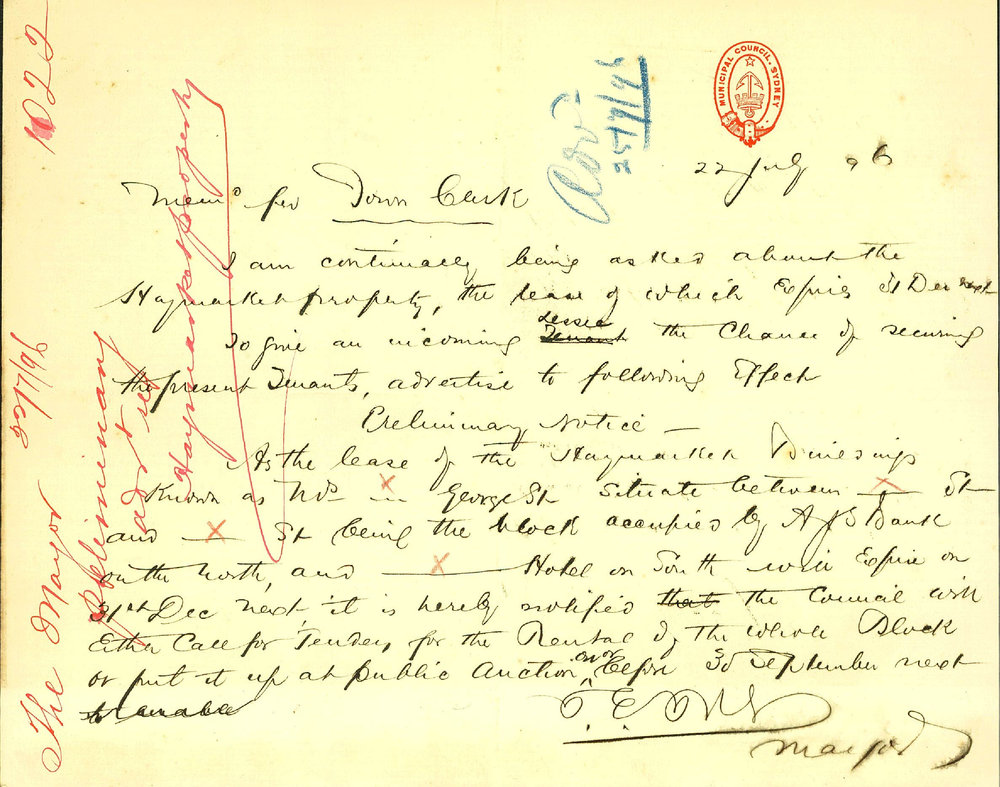 MUNICIPAL COUNCIL, SYDNEY
1022
22 July 96
25/7/96
Memo for Town Clerk
I am continually being asked about the
Haymarket property, the lease of which Expires 31 Dec next
To give an incoming Tenant Lessee the Chance of securing
the present Tenants, advertise to following Effect
Preliminary Notice —
As the lease of the Haymarket Buildings
Known as Nos — X George St situate between — X St
and — X St being the block occupied by A J S Bank
on the North, and — X Hotel on South will Expire on
31st Dec next it is hereby notified that the Council will
Either Call for Tenders for the Rental of the whole Block
or put it up at public Auction on or before 30 September next
to enable
Mayor
The Mayor 22/7/96
Preliminary
advt
Haymarket property